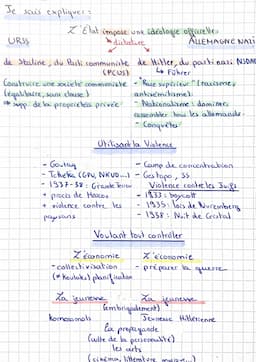 Je sais expliquer :
L'Etat impose une idéologie officielle
→ dictature
URSS
ALLEMAGNE NAZI
de Staline, du Parti communiste (PCUS)
de Hitler, du parti nazi (NSDAP
↳ Führer
Construire une société communiste (égalitaire, sans classe)
→ supp. de la propriété privée
- "Race supérieur" (racisme, antisémitisme)
- Nationalisme : dominer, rassembler tous les allemands
- Conquêtes
Utilisant la Violence
- Goulag
- Tchéka (GPU, NKVD...)
- 1937-38 : Grande Terreur
+ procès de Moscou
+ violence contre les paysans
- Camp de concentration
- Gestapo, SS
Violence contre les Juifs
- 1933 : boycott
- 1935 : lois de Nuremberg
- 1938 : Nuit de Cristal
Voulant tout contrôler
L'économie
L'économie
- collectivisation
(≠ Koulaks) planification
- préparer la guerre
La jeunesse
La jeunesse
(embrigadement)
Komsomols
Jeunesse Hitlérienne
La propagande
(culte de la personnalité)
les arts
(cinéma, littérature, musique...)